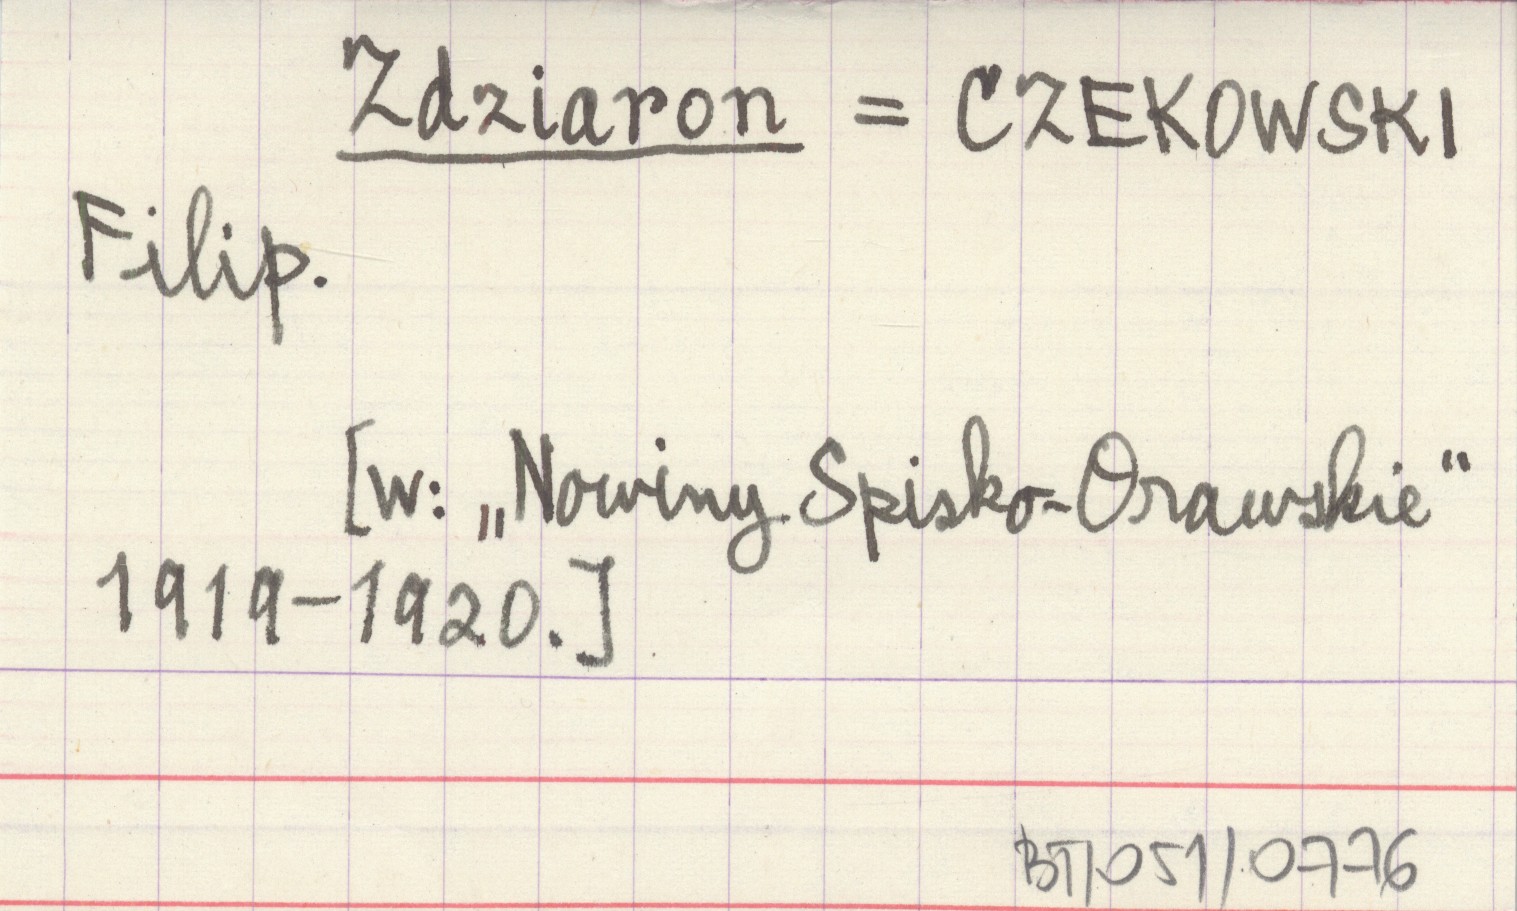 Zdziaron = CZEKOWSKI
Filip.
[w: „Nowiny Spisko-Orawskie“
1919-1920.]
BT/051/0776